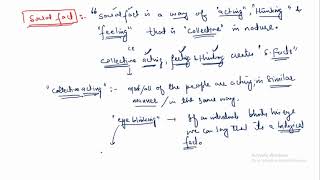 Social fact :- "Social fact is a way of "acting", "thinking" &
"feeling" that is "collective" in nature.
collective acting, feeling & thinking creates "S. Facts"
"collective acting" :- most/all of the people are acting in similar
manner / in the same way.
"eye blinking" → If an individual blinks his eye
we can say that its a biological
fact.